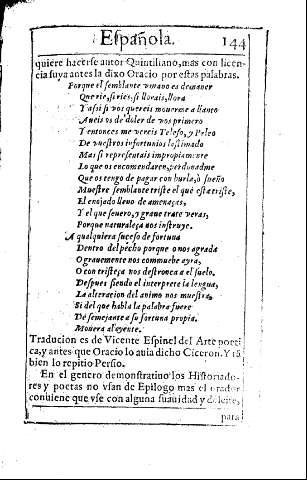 Española.
144
quiere hacerse autor Quintiliano, mas con licen
cia suya antes la dixo Oracio por estas palabras.
Porque el semblante vmano es de maner
Que rie, si ries, si llorais, llora
Y assi si vos quereis mouerme a llanto
Aueis os de doler de vos primero
Y entonces me vereis Telefo, y Peleo
De vuestros infortunios lastimado
Mas si representais impropiamente
Lo que os encomendaren, perdonadme
Que os tengo de pagar con burla, ò sueño
Muestre semblante triste el què està triste,
El enojado lleno de amenaças,
Y el que seuero, y graue trate veras,
Porque naturaleça nos instruye.
A qualquiera sucesso de fortuna
Dentro del pecho porque o nos agrada
O grauemente nos commuebe ayra,
O con tristeça nos destronca a el suelo.
Despues siendo el interprete la lengua,
La alteracion del animo nos muestra,
Si del que habla la palabra fuere
Desemejante a su fortuna propia.
Mouera al oyente.
Traducion es de Vicente Espinel del Arte poeti
ca, y antes que Oracio lo auia dicho Ciceron. Y tã
bien lo repitio Persio.
En el genero demonstratino los Historiado-
res y poetas no vsan de Epilogo mas el orador
conuiene que vse con alguna suauidad y deleite,
para